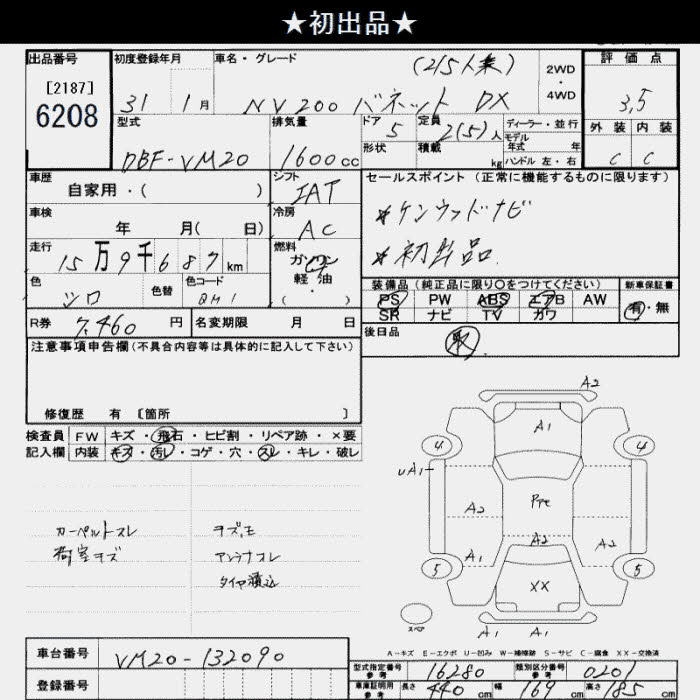 ★初出品★
出品番号 初度登録年月 車名・グレード (2/5人乗) 2WD・4WD 評価点
[2187]
6208 31 1月 NV200 バネット DX 3.5
型式 排気量 ドア 5 定員 2(5)人 ディーラー・並行 外装 内装
モデル年式 年
DBF-VM20 1600cc 形状 積載 kg ハンドル 左・右 C C
車歴 シフト セールスポイント (正常に機能するものに限ります)
自家用・( ) IAT
車検 冷房 *ケンウッドナビ
年 月( 日) AC
走行 燃料 *初出品.
15万9千687km ガソリン
軽・油
( )
色 色替 色コード 装備品 (純正品に限り○をつけてください) 新車保証書
シロ QM1 PS PW ABS エアB AW 有・無
SR ナビ TV カワ
R券 7,460円 名変期限 月 日 後日品
注意事項申告欄(不具合内容等は具体的に記入して下さい)
修復歴 有 〔箇所 〕
検査員 FW キズ・飛石・ヒビ割・リペア跡・×要
記入欄 内装 キズ・汚レ・コゲ・穴・スレ・キレ・破レ
A2
A1
4 4
UA1
A2 Pte
A2
A1 A2
5 XX 5
スペア A1 A1
カーペットスレ
荷室キズ
アンテナスレ
タイヤ積込
A-キズ E-エクボ U-凹み W-補修跡 S-サビ C-腐食 XX-交換済
車台番号 VM20-132090
登録番号
型式指定番号 参考 16280 類別区分番号 参考 0201
車庫証明用 参考 長さ 440cm 幅 169cm 高さ 185cm